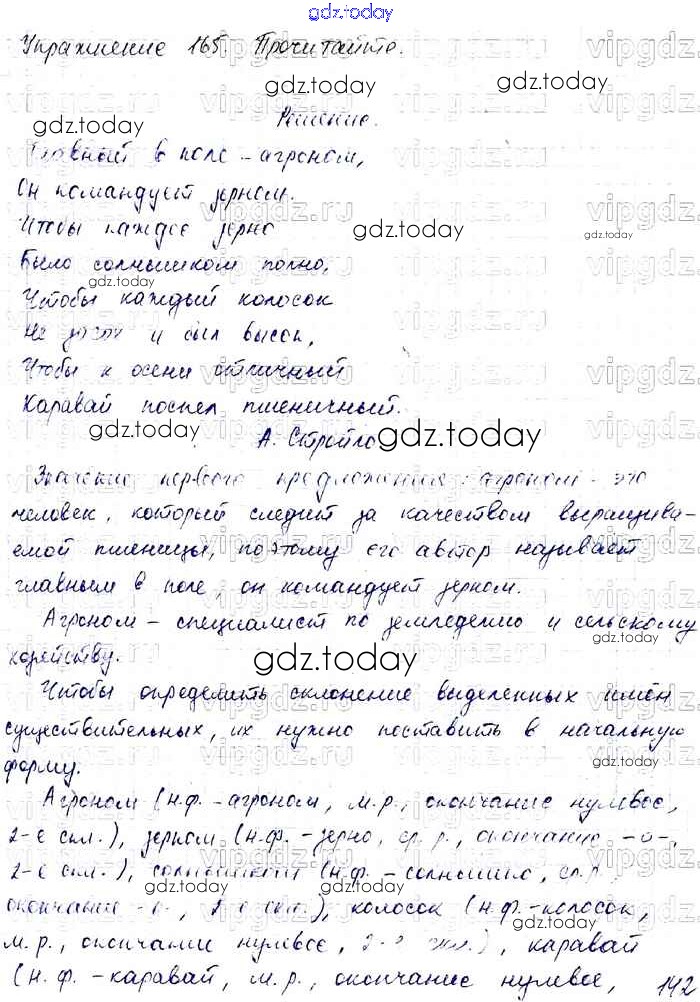 gdz.today
Упражнение 165. Прочитайте.
Решение.
Главный в поле - агроном,
Он командует зерном.
Чтобы каждое зерно
Было солнышком полно,
Чтобы каждый колосок
Не засох и был высок,
Чтобы к осени отличный
Каравай поспел пшеничный.
А. Стройло
Значение первого предложения: агроном - это
человек, который следит за качеством выращива-
емой пшеницы, поэтому его автор называет
главным в поле, он командует зерном.
Агроном - специалист по земледелию и сельскому
хозяйству.
Чтобы определить склонение выделенных имён
существительных, их нужно поставить в начальную
форму.
Агроном (н.ф. - агроном, м.р., окончание нулевое,
2-е скл.), зерном (н.ф. - зерно, ср.р., окончание -о-,
2-е скл.), солнышком (н.ф. - солнышко, ср.р.
окончание -о-, 2-е скл.), колосок (н.ф. - колосок,
м.р., окончание нулевое, 2-е скл.), каравай
(н.ф. - каравай, м.р., окончание нулевое,
142